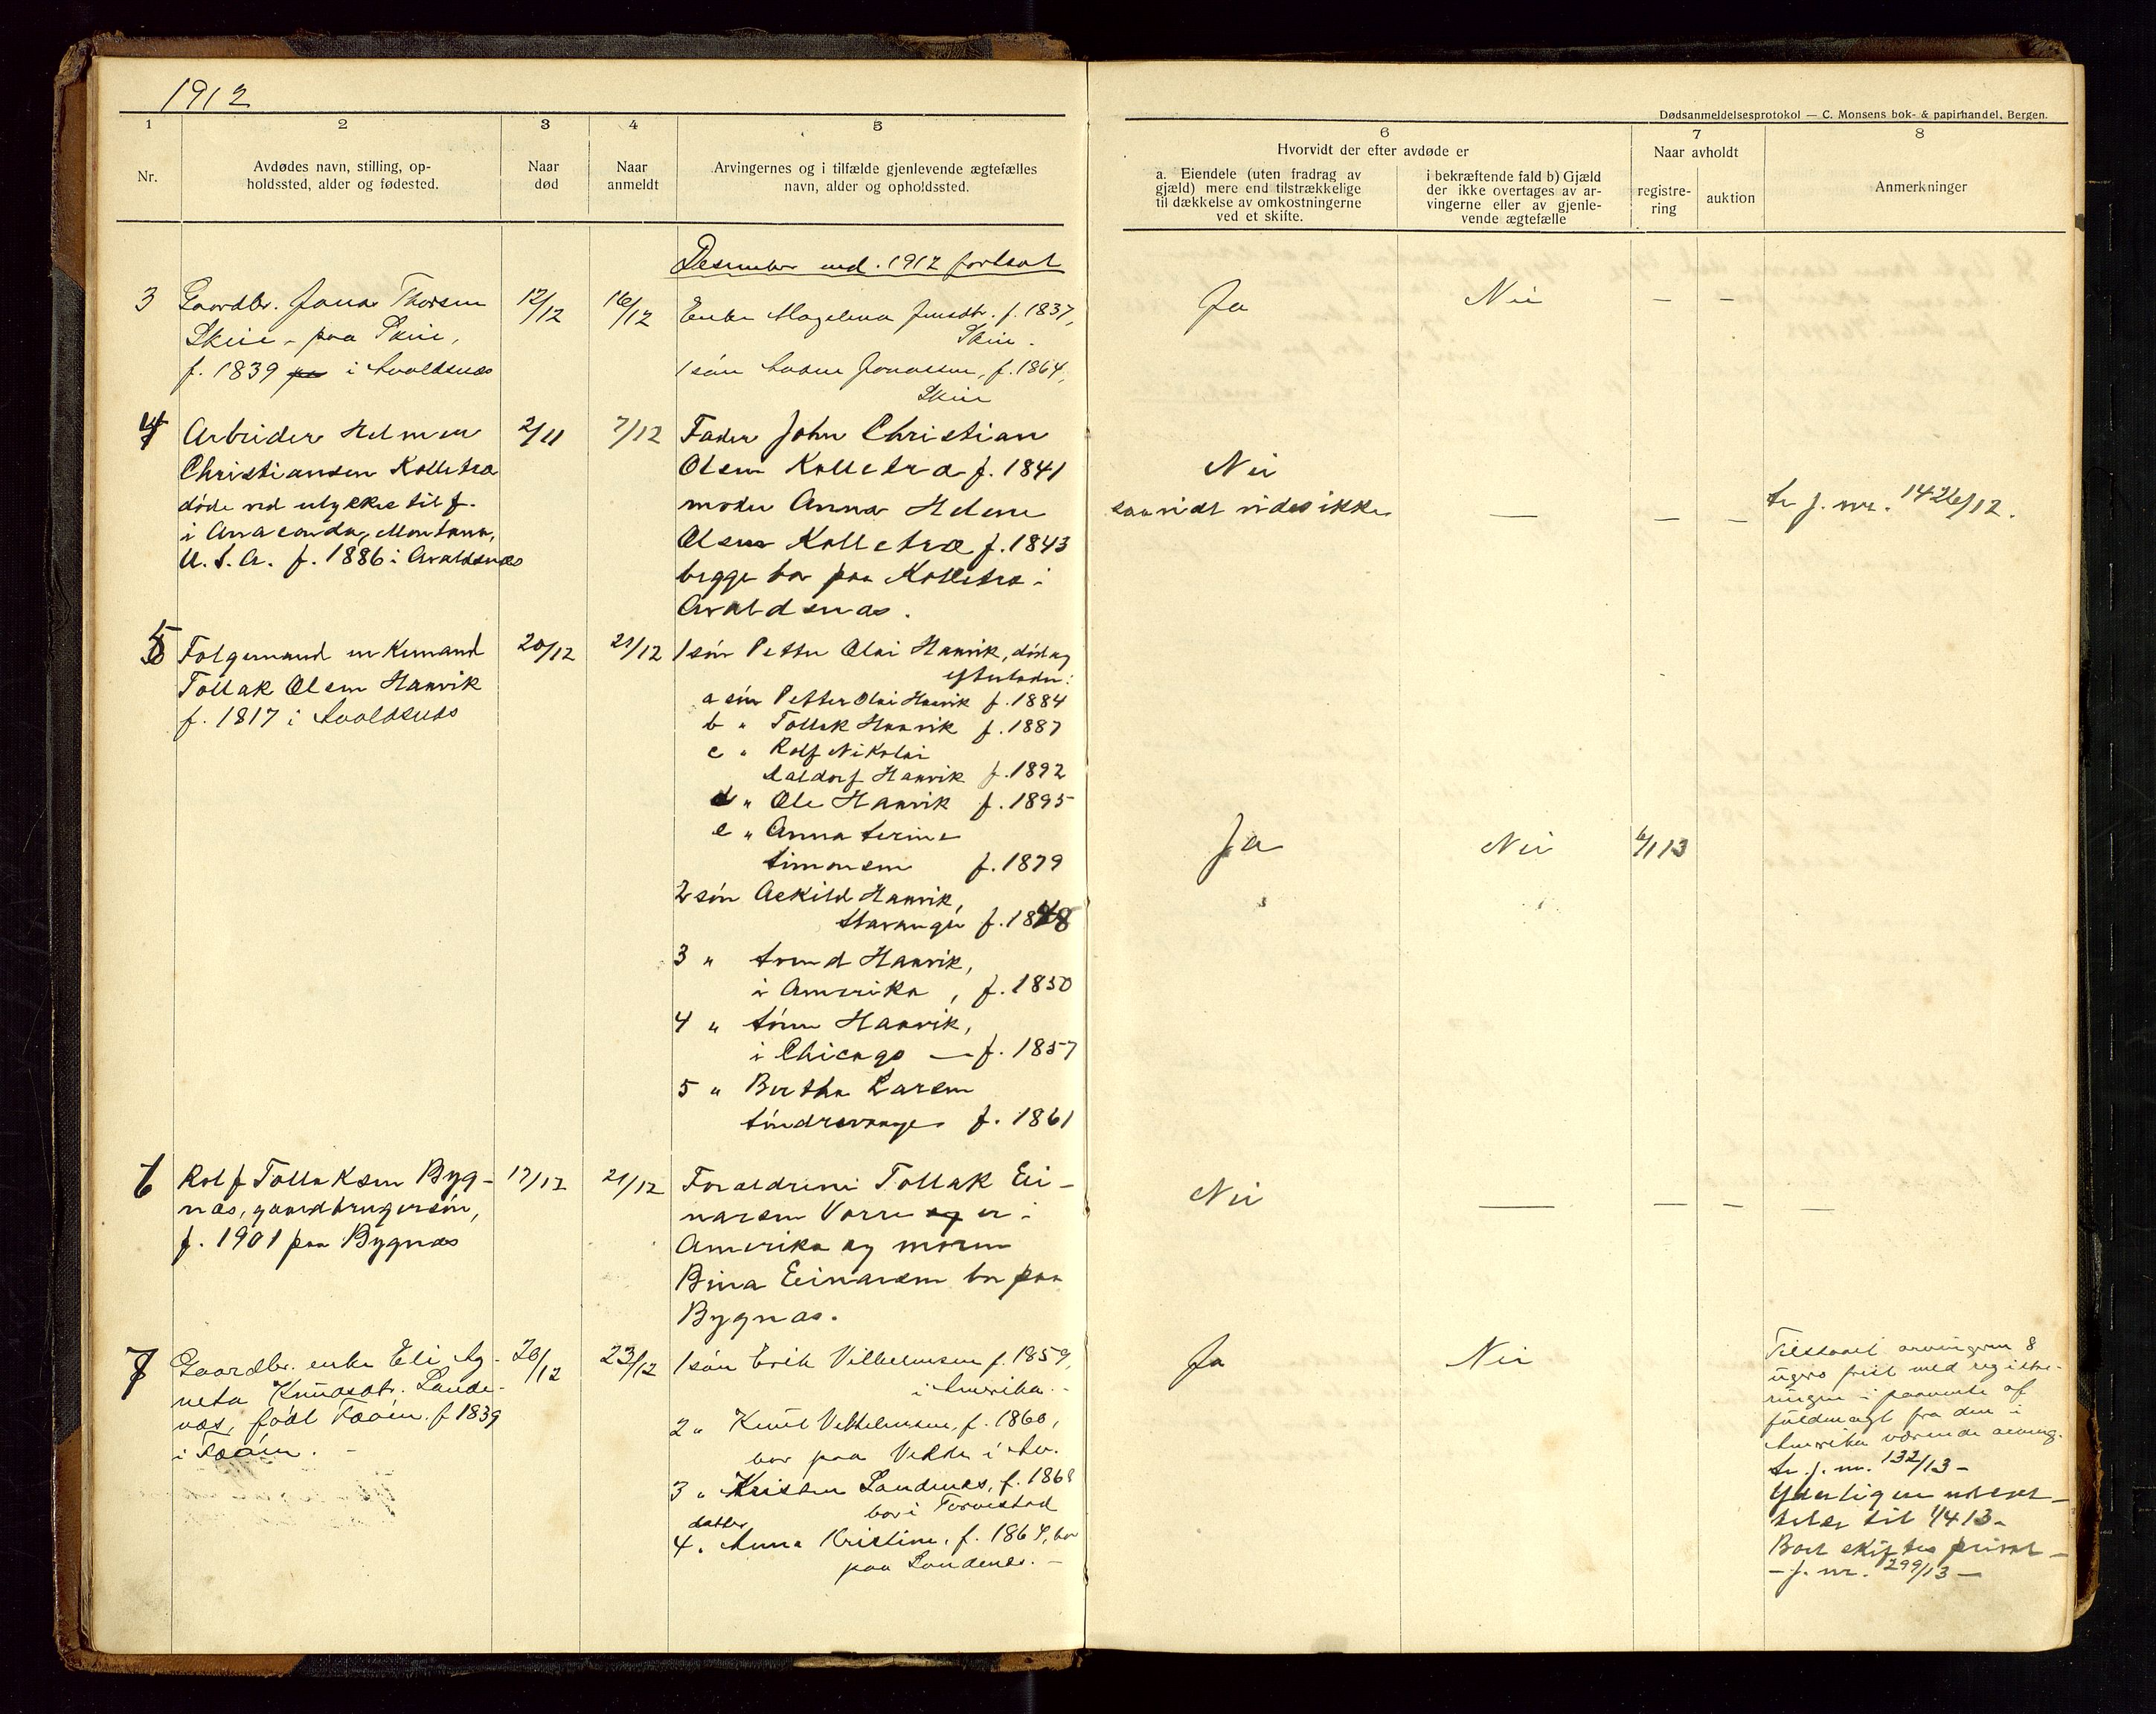 1912
Dødsanmeldelsesprotokol — C. Monsens bok- & papirhandel, Bergen.
1 2 3 4 5 6 7 8
Nr.
Avdødes navn, stilling, op-
holdssted, alder og fødested.
Naar
død
Naar
anmeldt
Arvingernes og i tilfælde gjenlevende ægtefælles
navn, alder og opholdssted.
Hvorvidt der efter avdøde er
a. Eiendele (uten fradrag av
gjæld) mere end tilstrækkelige
til dækkelse av omkostningerne
ved et skifte.
i bekræftende fald b) Gjæld
der ikke overtages av ar-
vingerne eller av gjenle-
vende ægtefælle
Naar avholdt
registre-
ring
auktion
Anmerkninger
Desember md. 1912 fortsat
3
Gaardbr. Jonas Thorsen
Skeie - paa Skeie,
f. 1839 i Avaldsnes
12/12
16/12
Enke Magdena Jensdtr. f. 1837,
Skeie.
1 søn Jonassen, f. 1864,
Skeie
Ja
Nei
— —
4
Arbeider Helmer
Christiansen Kolletræ
døde ved ulykkestilf.
i Anaconda, Montana,
U.S.A. f. 1886 i Avaldsnæs
2/11
7/12
Fader John Christian
Olsen Kolletræ f. 1841
moder Anna Helene
Olsen Kolletræ f. 1843
begge bor paa Kolletræ i
Avaldsnæs.
Nei
saavidt vides ikke
— — —
Se j. nr. 1426/12.
5
Følgemand enkemand
Tollak Olsen Haavik
f. 1817 i Avaldsnes
20/12
21/12
1 søn Petter Olai Haavik, død og
efterlader:
a søn Petter Olai Haavik f. 1884
b " Tollak Haavik f. 1887
c " Rolf Nikolai
Saldorf Haavik f. 1892
d " Ole Haavik f. 1895
e " Anna Serine
Simonsen f. 1879
2 søn Askild Haavik,
Stavanger f. 1848
3 " Svend Haavik,
i Amerika, f. 1850
4 " Sønn Haavik,
i Chicago — f. 1857
5 " Bertha Larsen
f. 1861
Ja
Nei
6/1 13
6
Rolf Tollaksen Byg-
næs, gaardbrugersøn,
f. 1901 paa Bygnæs
17/12
21/12
Forældrene Tollak Ei-
narsen Vorre og er i
Amerika og moren
Bina Einarsen bor paa
Bygnæs.
Nei
— — — —
7
Gaardbr. enke Eli Ag-
neta Knudsdtr. Lande-
næs, født Føøen. f 1839
i Føøen. -
20/12
23/12
1 søn Erik Vilhelmsen f. 1859,
i Amerika. -
2 " Knut Vilhelmsen, f. 1860,
bor paa Velde i Av.
3 " Kristen Landenes, f. 1868
bor i Torvestad
datter
4. Anna Kristine, f. 1864, bor
paa Landenes. -
Ja
Nei
Tilstaaet arvingerne 8
ugers frist med registre-
ringen i paavente af
fuldmagt fra den i
Amerika værende arving.
Se j. nr. 132/13 -
Yderligere utsæt-
telse til 1/4 13 -
Boet skiftes privat -
- j. nr. 299/13 -